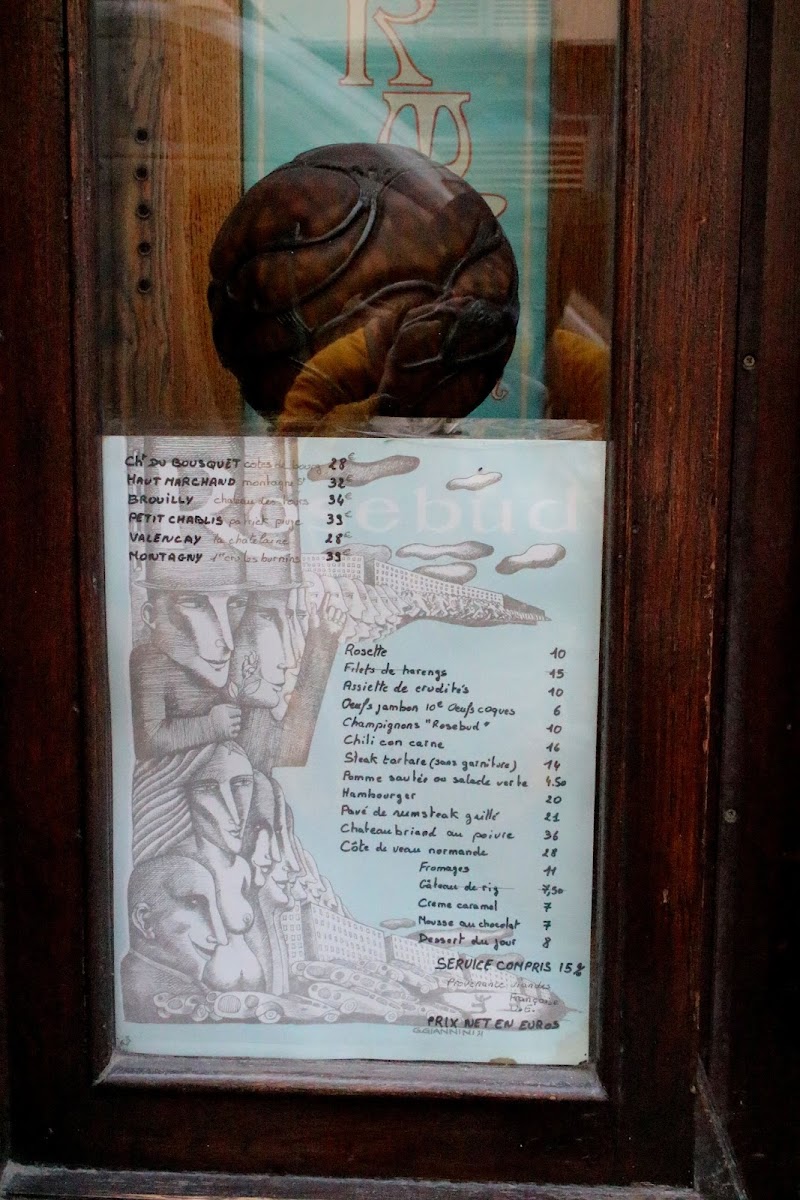 R
Rosebud
CHAU DU BOUSQUET cotes de bourg 28€
HAUT MARCHAND montagne St 32€
BROUILLY chateau des tours 34€
PETIT CHABLIS patrick piuze 39€
VALENCAY la chatelaine 28€
MONTAGNY 1er cru les burnins 39€
Rosette 10
Filets de harengs 15
Assiette de crudités 10
Oeufs jambon 10€ Oeufs coques 6
Champignons "Rosebud" 10
Chili con carne 16
Steak tartare (sans garniture) 14
Pomme sautés ou salade verte 4.50
Hambourger 20
Pavé de rumsteak grillé 21
Chateaubriand au poivre 36
Côte de veau normande 28
Fromages 11
Gâteau de riz 7,50
Creme caramel 7
Mousse au chocolat 7
Dessert du jour 8
SERVICE COMPRIS 15%
Provenance viandes
Française
PRIX NET EN EUROS
G.GIANNINI